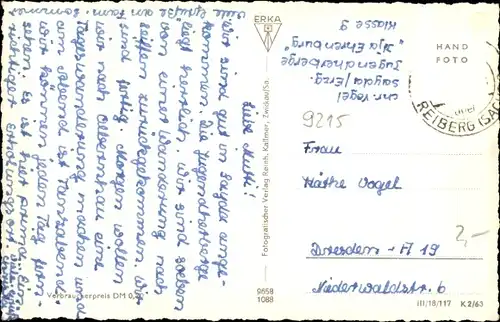 Liebe Mutti!
Wir sind gut in Sayda ange-
kommen. Die Jugendherberge
liegt herrlich. Wir sind soeben
von einer Wanderung nach
Seiffen zurückgekommen. Wir
sind fertig. Morgen wollen
wir nach Olbernhau eine
Tageswanderung machen und
am Abend ist Tanzabend.
Wir können jeden Tag fern-
sehen. Es ist hier prima. Ein
richtiger Erholungsort.
Viele Grüße an
ERKA
HAND
FOTO
Chr. Vogel
Sayda/Erzg.
Jugendherberge
"Ilja Ehrenburg"
Klasse 9
REIBERG (SA
9215
Frau
Käthe Vogel
Dresden - A 19
Niederwaldstr. 6
2,-
Fotografischer Verlag Reinh. Kallmer, Zwickau/Sa.
9658
1088
Verbraucherpreis DM 0,
III/18/117 K 2/63